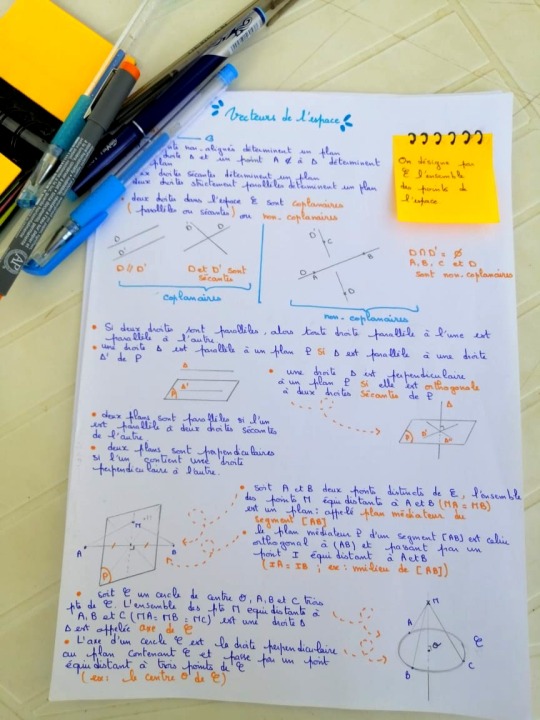 Vecteurs de l'espace
non-alignés déterminent un plan
droite Δ et un point A ∉ à Δ déterminent
plan
droites sécantes déterminent un plan
deux droites strictement parallèles déterminent un plan
• deux droites dans l'espace ℰ sont coplanaires
(parallèles ou sécantes) ou non-coplanaires
On désigne par
ℰ l'ensemble
des points de
l'espace
D
D'
D // D'
D'
D
D et D' sont
sécantes
coplanaires
D'
C
B
D
A
D
non-coplanaires
D ∩ D' = ∅
A, B, C et D
sont non-coplanaires
• Si deux droites sont parallèles, alors toute droite parallèle à l'une est
parallèle à l'autre
• une droite Δ est parallèle à un plan P si Δ est parallèle à une droite
Δ' de P
Δ
Δ'
P
• une droite Δ est perpendiculaire
à un plan P si elle est orthogonale
à deux droites sécantes de P
Δ
D
D'
P
• deux plans sont parallèles si l'un
est parallèle à deux droites sécantes
de l'autre.
• deux plans sont perpendiculaires
si l'un contient une droite
perpendiculaire à l'autre.
• soit A et B deux points distincts de ℰ, l'ensemble
des points M équidistants à A et B (MA = MB)
est un plan : appelé plan médiateur du
segment [AB]
• le plan médiateur P d'un segment [AB] est celui
orthogonal à (AB) et passant par un
point I équidistant à A et B
(IA = IB ; ex: milieu de [AB])
M
A
B
P
• soit ℰ un cercle de centre O, A, B et C trois
pts de ℰ. L'ensemble des pts M équidistants à
A, B et C (MA = MB = MC) est une droite Δ
Δ est appelée axe de ℰ
• L'axe d'un cercle ℰ est la droite perpendiculaire
au plan contenant ℰ et passe par un point
équidistant à trois points de ℰ
(ex: le centre O de ℰ)
M
A
ℰ
O
B
C